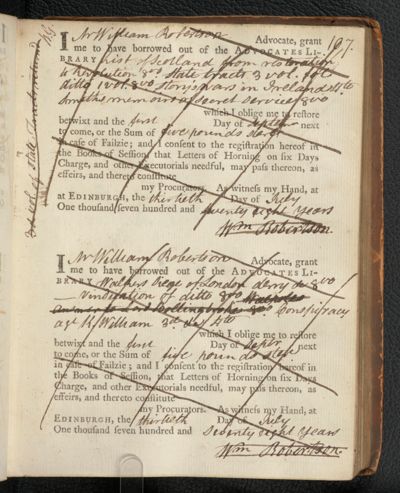 197.
I Mr William Robertson Advocate, grant
me to have borrowed out of the ADVOCATES LI-
BRARY hist of Scotland from restoration
to Revolution 8vo State tracts 3 vol. fol.
ditto 1 vol. 8vo Story's wars in Ireland 4to
Smiths memoirs of secret service 8vo
which I oblige me to restore
betwixt and the first Day of next
to come, or the Sum of five pounds sterl
in case of Failzie; and I consent to the registration hereof in
the Books of Session, that Letters of Horning on six Days
Charge, and other Executorials needful, may pass thereon, as
effeirs, and thereto constitute
my Procurators. As witness my Hand, at
at EDINBURGH, the thirtieth Day of July
One thousand seven hundred and seventy eight years
Wm Robertson.
I Mr William Robertson Advocate, grant
me to have borrowed out of the ADVOCATES LI-
BRARY Walkers Siege of London dery 8vo
Vindication of ditto 8vo
Conspiracy
agt K. William 3d 4to
which I oblige me to restore
betwixt and the first Day of next
to come, or the Sum of five pounds sterl
in case of Failzie; and I consent to the registration hereof in
the Books of Session, that Letters of Horning on six Days
Charge, and other Executorials needful, may pass thereon, as
effeirs, and thereto constitute
my Procurators. As witness my Hand, at
EDINBURGH, the thirtieth Day of July
One thousand seven hundred and seventy eight years
Wm Robertson.